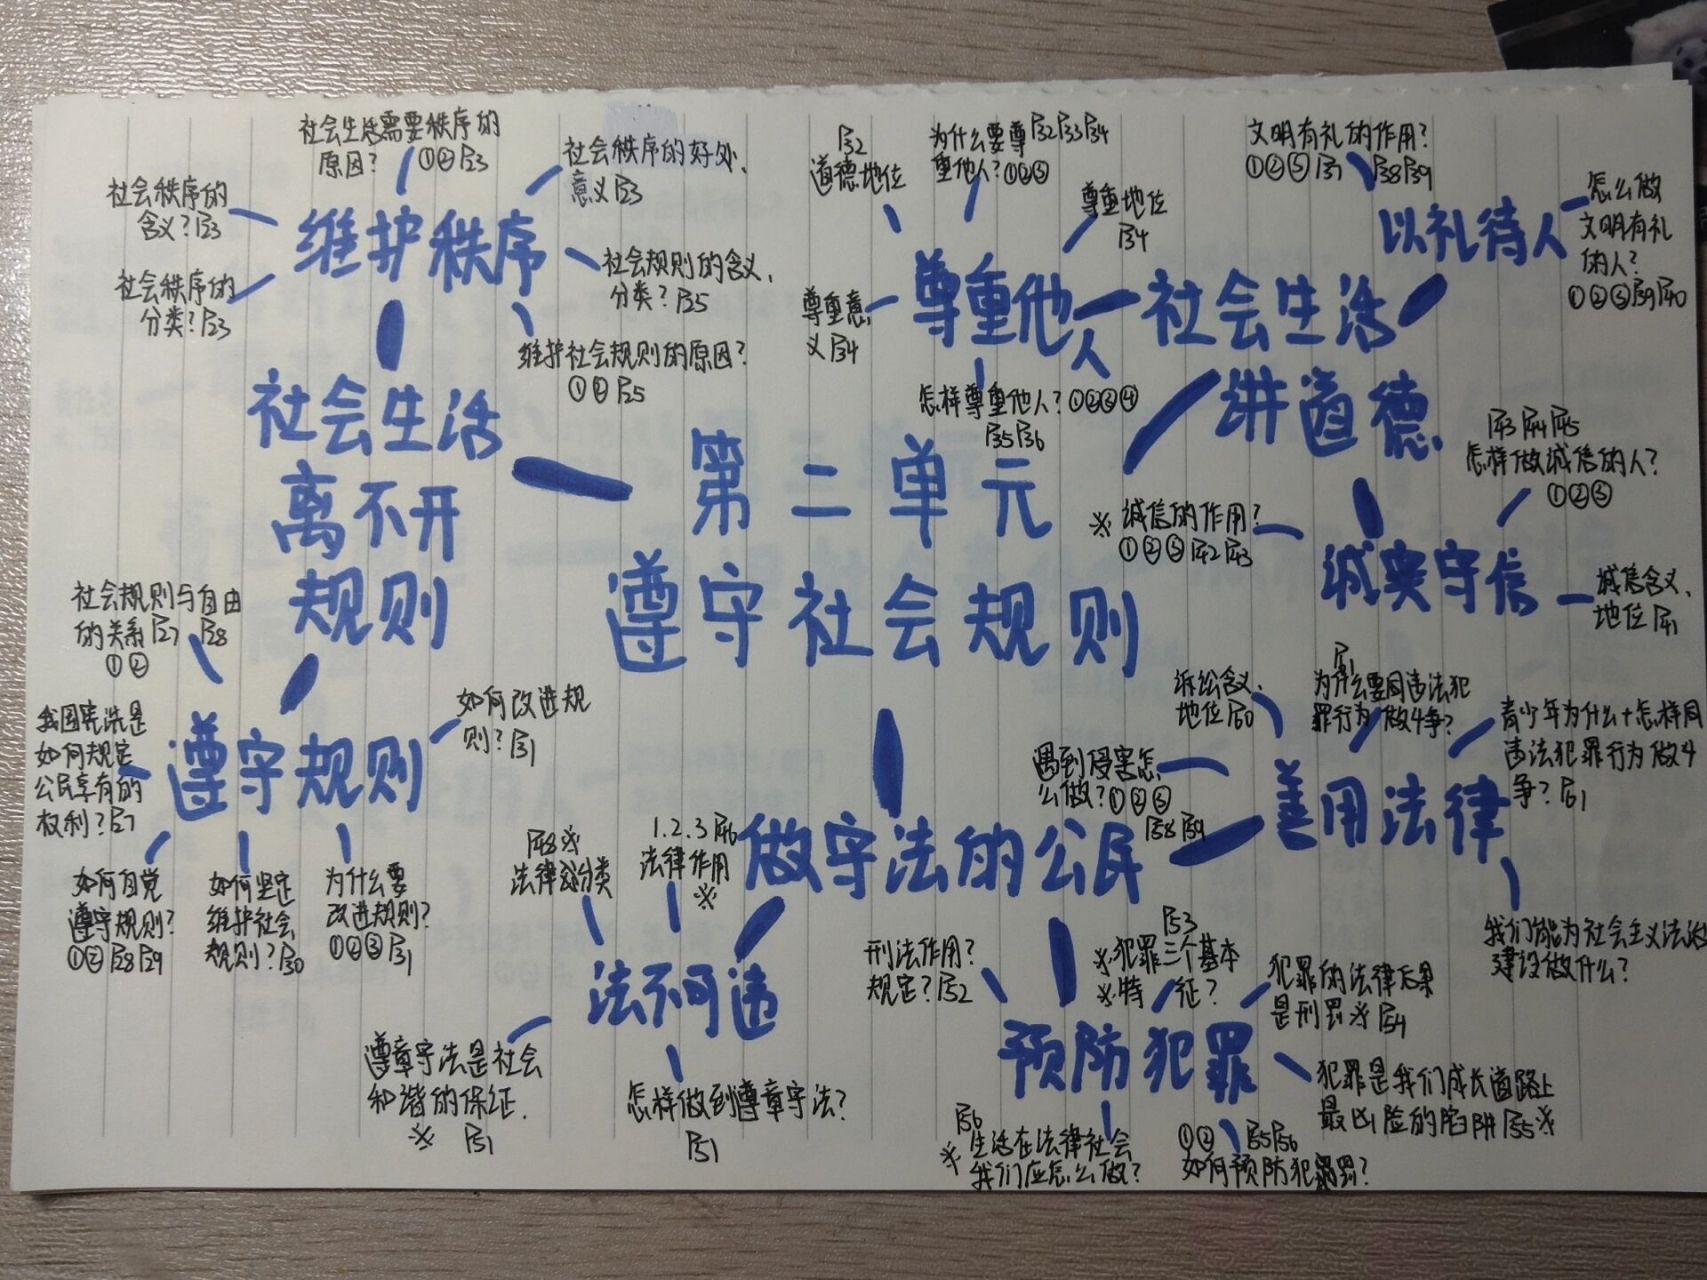 第二单元
遵守社会规则
社会生活
离不开
规则
维护秩序
社会秩序的
含义?P23
社会秩序的
分类?P23
社会生活需要秩序的
原因? ①②P23
社会秩序的好处、
意义P23
社会规则的含义、
分类?P25
维护社会规则的原因?
①②P25
遵守规则
社会规则与自由
的关系P27 P28
①②
我国宪法是
如何规定
公民享有的
权利?P27
如何自觉
遵守规则?
①②P28P29
如何坚定
维护社会
规则?P30
为什么要
改进规则?
①②③P31
如何改进规
则?P31
社会生活
讲道德
尊重他人
P32
道德地位
为什么要尊P32P33P34
重他人?①②③
尊重地位
P34
尊重意
义P34
怎样尊重他人?①②③④
P35P36
以礼待人
文明有礼的作用?
①②③P37 P38P39
怎么做
文明有礼
的人?
①②③P39P40
诚实守信
P43P44P45
怎样做诚信的人?
①②③
※诚信的作用?
①②③P42P43
诚信含义、
地位P41
做守法的公民
法不可违
P48※
法律分类
1.2.3 P46
法律作用
※
遵章守法是社会
和谐的保证.
※ P51
怎样做到遵章守法?
P51
预防犯罪
刑法作用?
规定?P52
P53
※犯罪三个基本
※特 征?
犯罪的法律后果
是刑罚※P54
犯罪是我们成长道路上
最凶险的陷阱P55※
①② P55P56
如何预防犯罪?
P56
※生活在法律社会
我们应怎么做?
善用法律
诉讼含义、
地位P60
遇到侵害怎
么做?①②③
P58P59
P61
为什么要同违法犯
罪行为做斗争?
青少年为什么+怎样同
违法犯罪行为做斗
争?P61
我们能为社会主义法治
建设做什么?